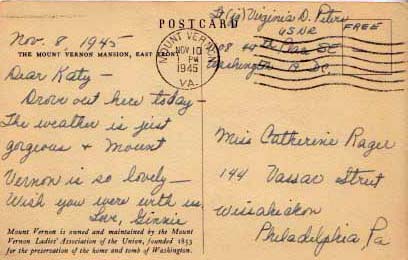 POSTCARD
Lt (jg) Virginia D. Petery
USNR
FREE
08 44th Place SE
Washington 19 DC
Nov. 8, 1945
THE MOUNT VERNON MANSION, EAST FRONT
MOUNT VERNON
NOV 10
1 PM
1945
VA.
Dear Katy -
Drove out here today -
The weather is just
gorgeous & Mount
Vernon is so lovely -
Wish you were with us.
Love, Ginnie
Miss Catherine Rager
144 Vassar Street
Wissahickon
Philadelphia, Pa
Mount Vernon is owned and maintained by the Mount
Vernon Ladies' Association of the Union, founded 1853
for the preservation of the home and tomb of Washington.